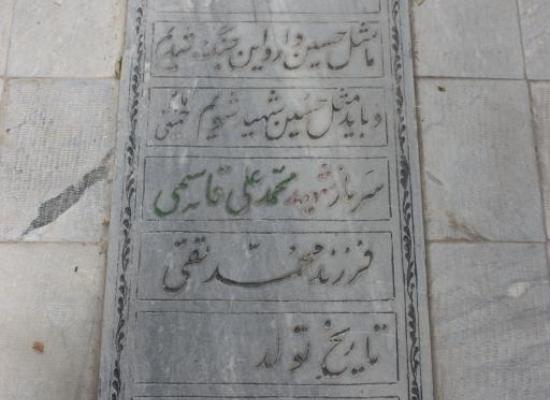 ما مثل حسین وارد این جنگ شدیم
و باید مثل حسین شهید شویم خمینی
سرباز شهید محمد علی قاسمی
فرزند محمد نقی
تاریخ تولد